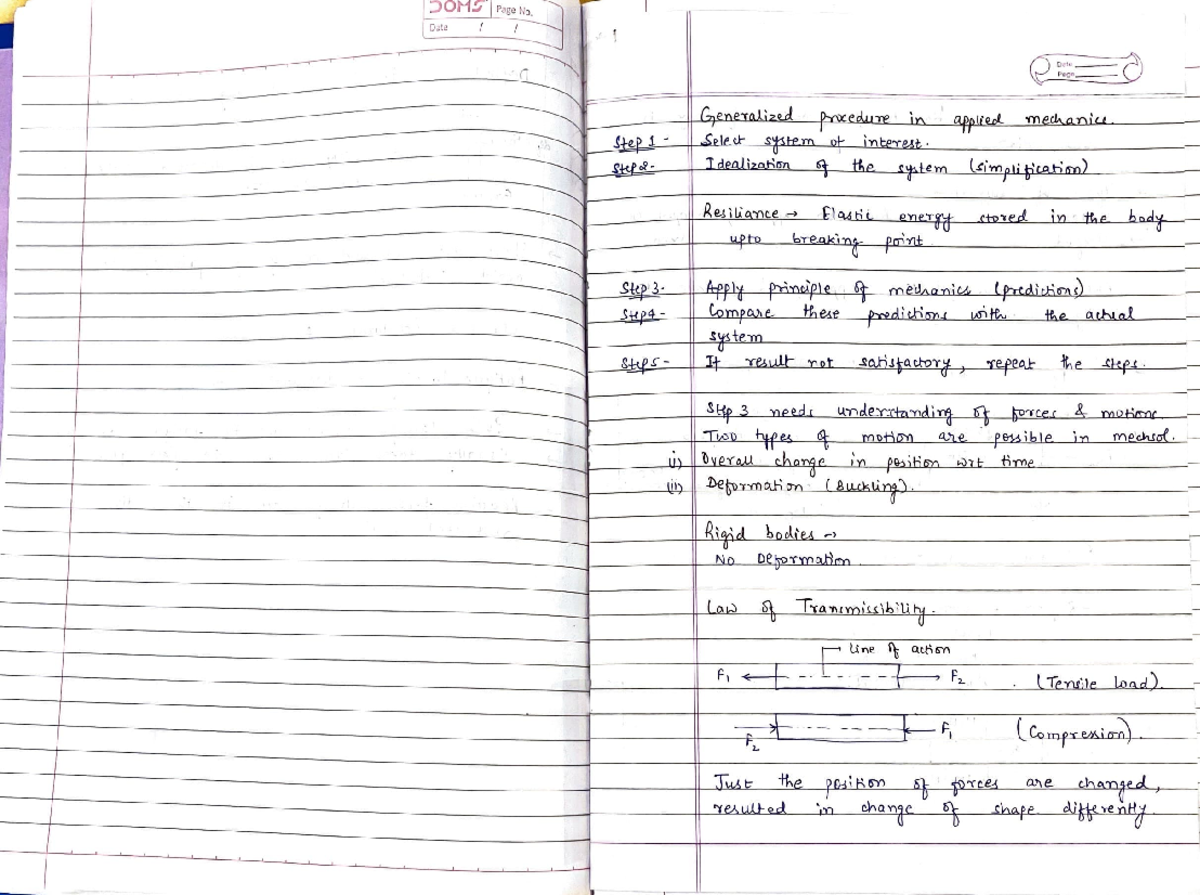 DOMS Page No.
Date / /
Date
Page
Generalized procedure in applied mechanics.
Step 1 - Select system of interest.
Step 2- Idealization of the system (simplification)
Resiliance → Elastic energy stored in the body
upto breaking point
Step 3- Apply principle of mechanics (predictions)
Step 4 - Compare these predictions with the actual
system
Step 5 - If result not satisfactory, repeat the steps.
Step 3 needs understanding of forces & motions.
Two types of motion are possible in mechsol.
i) Overall change in position wrt time
(ii) Deformation (Buckling).
Rigid bodies →
No Deformation
Law of Transmissibility.
Line of action
F₁ F₂ (Tensile load).
F₂ F₁ (Compression).
Just the position of forces are changed,
resulted in change of shape differently.